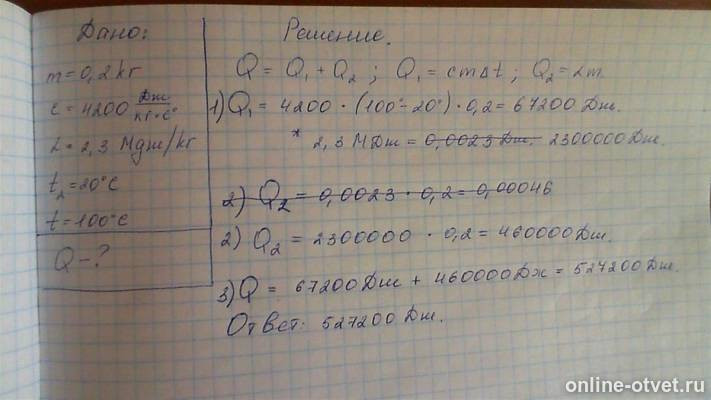 Дано:
m = 0,2 кг
c = 4200 Дж/кг·с°
L = 2,3 Мдж/кг
t₂ = 20°C
t = 100°C
Q – ?
Решение.
Q = Q₁ + Q₂ ; Q₁ = cmΔt ; Q₂ = Lm.
1) Q₁ = 4200 · (100° – 20°) · 0,2 = 67200 Дж.
* 2,3 МДж = 0,0023 Дж. 2300000 Дж.
2) Q₂ = 0,0023 · 0,2 = 0,00046
2) Q₂ = 2300000 · 0,2 = 460000 Дж.
3) Q = 67200 Дж + 460000 Дж = 527200 Дж.
Ответ: 527200 Дж.
online-otvet.ru